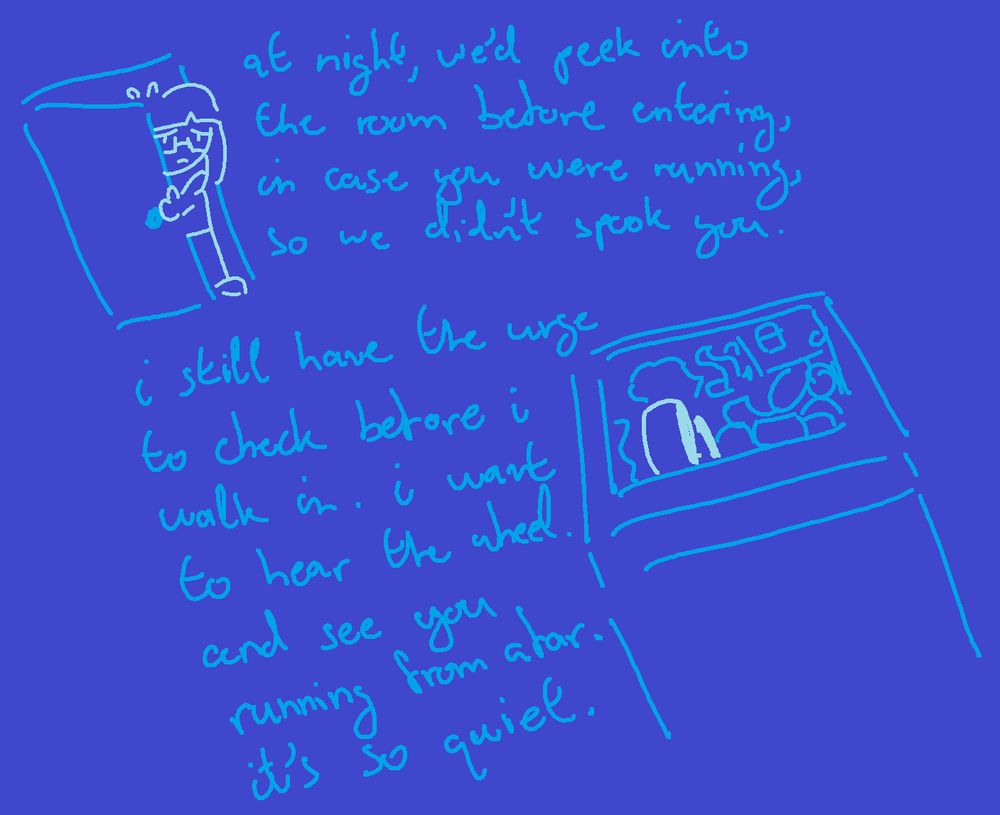 at night, we'd peek into
the room before entering,
in case you were running,
so we didn't spook you.
i still have the urge
to check before i
walk in. i want
to hear the wheel.
and see you
running from afar.
it's so quiet.